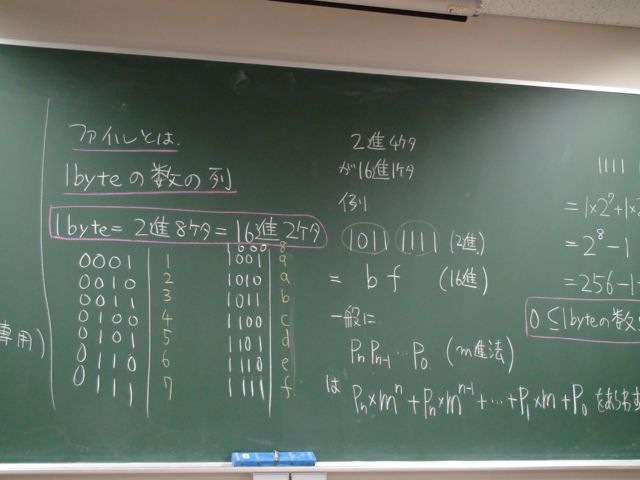 ファイルとは
1byteの数の列
1byte = 2進8ケタ = 16進2ケタ
0001 1
0010 2
0011 3
0100 4
0101 5
0110 6
0111 7
1000 8
1001 9
1010 a
1011 b
1100 c
1101 d
1110 e
1111 f
専用)
2進4ケタ
が16進1ケタ
例)
1011 1111 (2進)
= b f (16進)
一般に
PnPn-1…P0 (m進法)
は Pn×m^n+Pn×m^n-1+…+P1×m+P0 をあらわす
1111 1
=1×2^7+1×2
=2^8-1
=256-1
0≦1byteの数